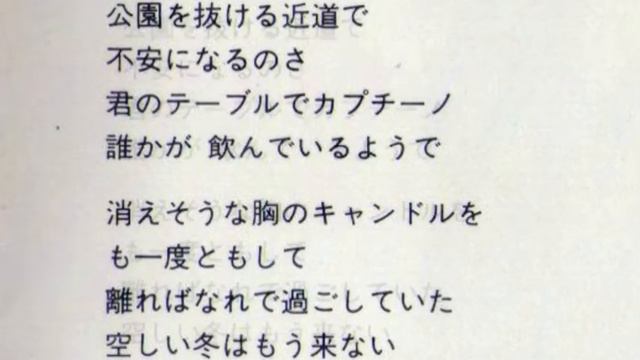 公園を抜ける近道で
不安になるのさ
君のテーブルでカプチーノ
誰かが 飲んでいるようで
消えそうな胸のキャンドルを
も一度ともして
離ればなれで過ごしていた
空しい冬はもう来ない